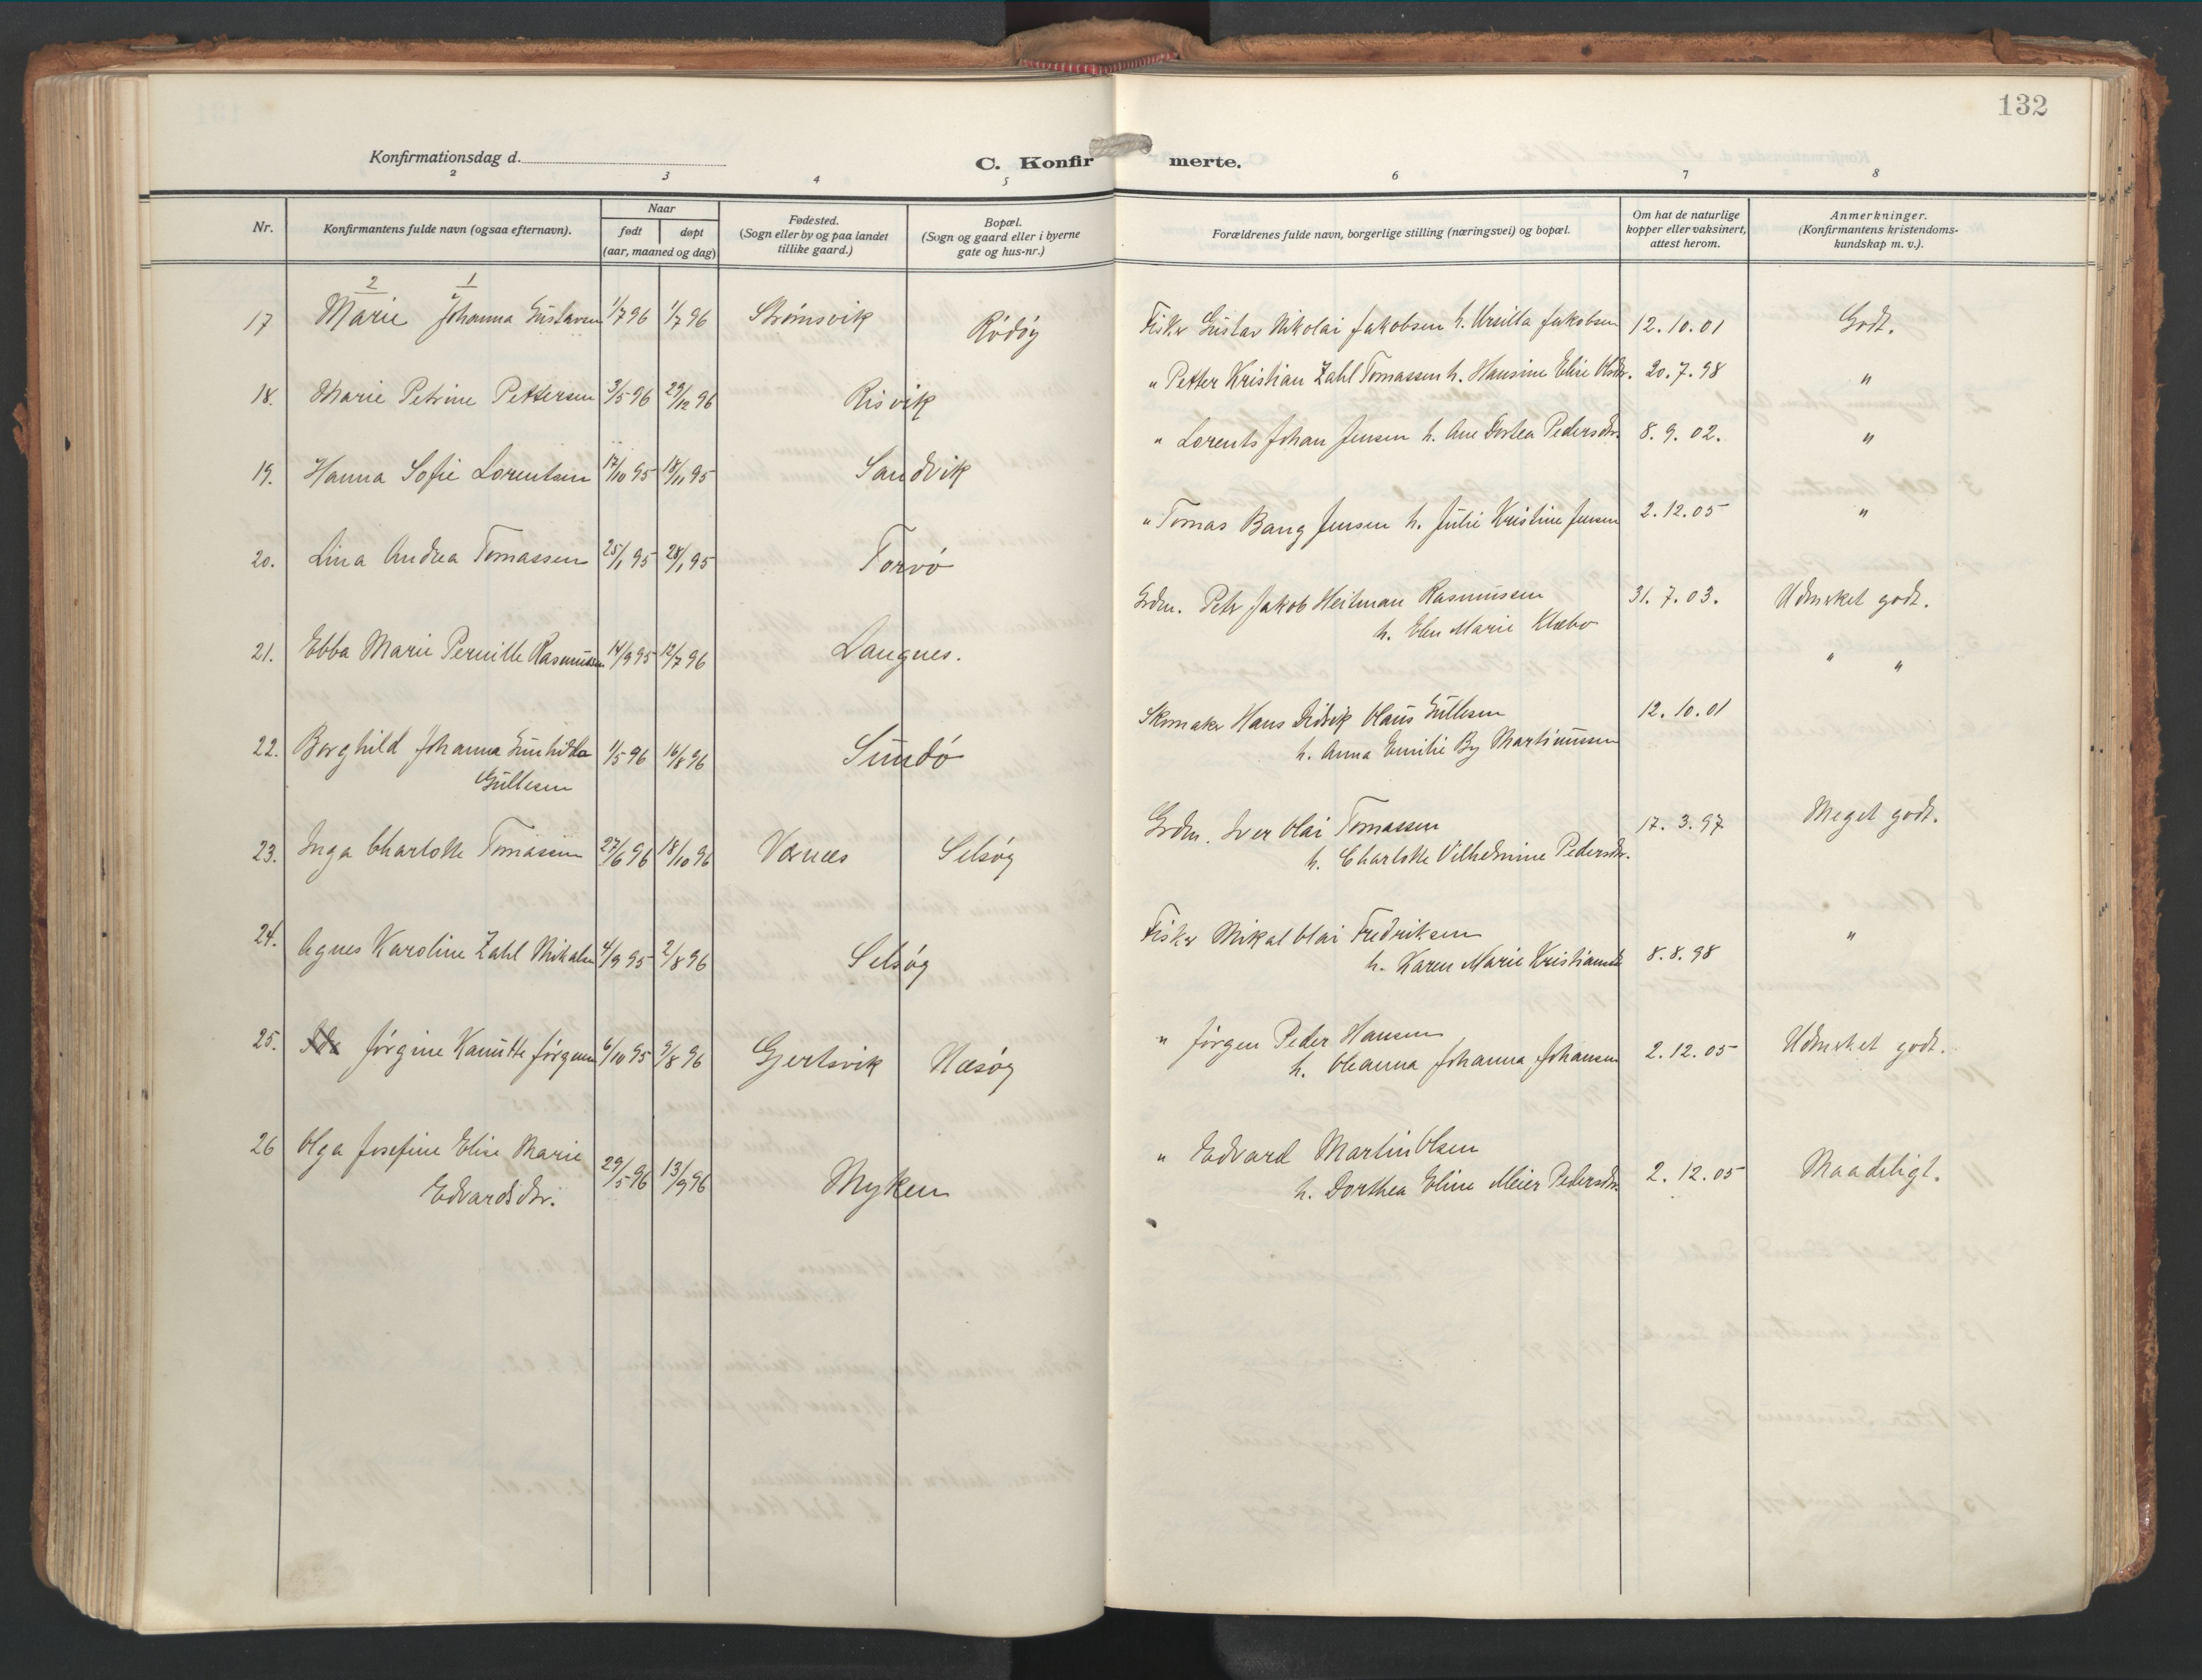 132
Konfirmationsdag d.
C. Konfir merte.
2 3 4 5 6 7 8
Nr.
Konfirmantens fulde navn (ogsaa efternavn).
Naar
født
døpt
(aar, maaned og dag)
Fødested.
(Sogn eller by og paa landet
tillike gaard.)
Bopæl.
(Sogn og gaard eller i byerne
gate og hus-nr.)
Forældrenes fulde navn, borgerlige stilling (næringsvei) og bopæl.
Om hat de naturlige
kopper eller vaksinert,
attest herom.
Anmerkninger.
(Konfirmantens kristendoms-
kundskap m. v.).
2 1
17 Marie Johanna Gustavsen 1/7 96 1/7 96 Strømsvik Rödöy Fisker Gustav Nikolai Jakobsen h. Ursilla Jakobsen 12.10.01 Godt.
18. Marie Petrine Pettersen 3/5 96 29/12 96 Risvik " Petter Kristian Zahl Tomassen h. Hansine Elise Olsdr. 20.7.98 "
19. Hanna Sofie Lorentsen 17/10 95 18/11 95 Sandvik " Lorents Johan Jensen h. Ane Dortea Pedersdtr. 8.9.02. "
20. Lina Andrea Tomassen 25/1 95 28/1 95 Torvö " Tomas Bang Jensen h. Julie Kristine Jensen 2.12.05 "
21. Ebba Marie Pernille Rasmussen 14/9 95 12/7 96 Langnes. Grdm. Petr Jakob Heitman Rasmussen 31.7.03. Udmerket godt.
h. Elen Marie Klæbo
22. Borghild Johanna Gunhilda 1/5 96 16/8 96 Sundö Skomaker Hans Didrik Olaus Gullesen 12.10.01 " "
Gullesen h. Anna Emilie By Martinussen
23. Inga Charlotte Tomassen 27/6 96 18/10 96 Værnæs Selsöy Grdm. Iver Olai Tomassen 17.3.97 Meget godt.
h. Charlotte Vilhelmine Pedersdtr.
24. Agnes Karoline Zahl Mikalsen 4/9 95 2/8 96 Selsöy Fisker Mikal Olai Fredriksen "
h. Karen Marie Kristiansdtr 8.8.98
25. Ida Jörgine Kamitte Jörgensen 6/10 95 9/8 96 Gjertsvik Næsöy " Jörgen Peder Hansen 2.12.05 Udmerket godt.
h. Oleanna Johanna Johansen
26 Olga Josefine Elise Marie 29/5 96 13/9 96 Myken " Edvard Martin Olsen 2.12.05 Maadeligt.
Edvardsdtr. h. Dorthea Eline Meier Pedersdtr.